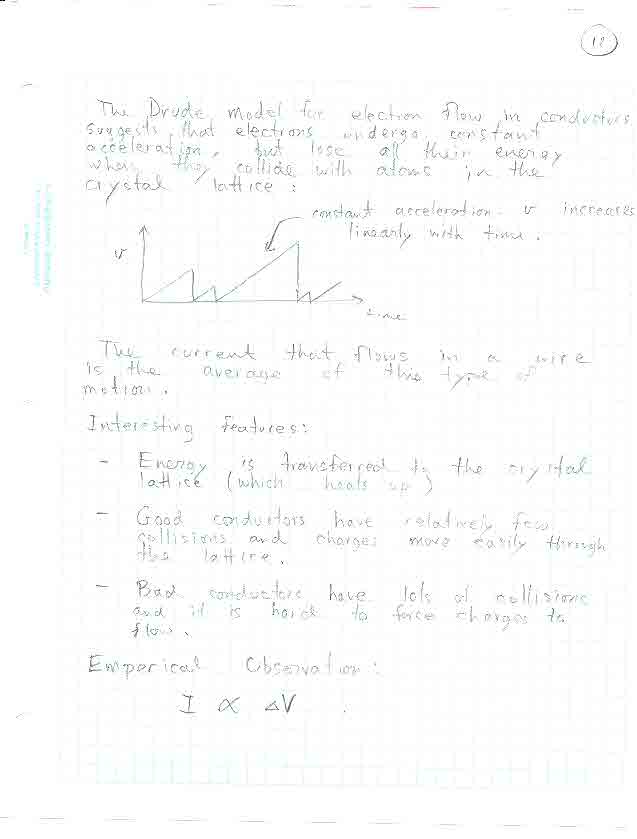 12
The Drude model for electron flow in conductors
suggests that electrons undergo constant
acceleration, but lose all their energy
when they collide with atoms in the
crystal lattice:
constant acceleration. v increases
linearly with time.
v
time
The current that flows in a wire
is the average of this type of
motion.
Interesting features:
- Energy is transferred to the crystal
lattice (which heats up)
- Good conductors have relatively few
collisions and charges move easily through
the lattice.
- Bad conductors have lots of collisions
and it is hard to force charges to
flow.
Emperical Observation:
I ∝ ΔV